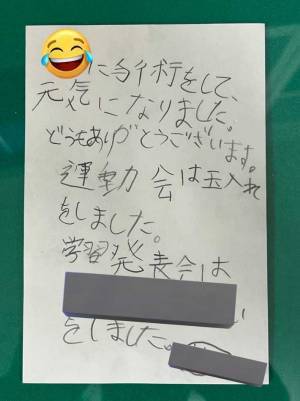 に当イボテをして、
元気になりました。
どうもありがとうございます。
運動会は玉入れ
をしました。
学習発表会は
い
をしました。